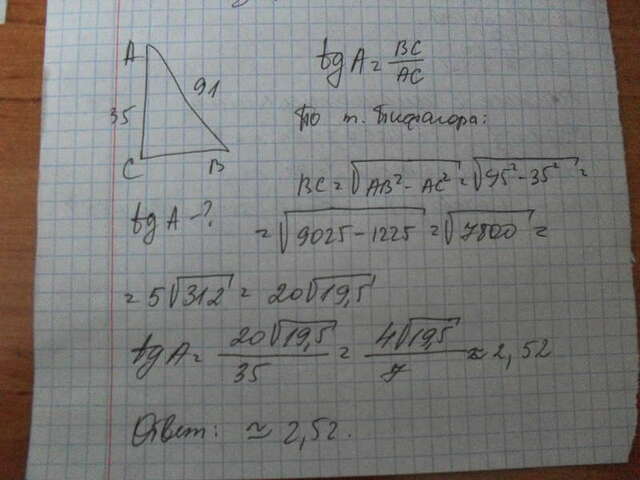 A
91
35
C
B
tg A = BC/AC
По т. Пифагора:
BC = √(AB² - AC²) = √(95² - 35²) =
tg A - ?
= √(9025 - 1225) = √7800 =
= 5√312 = 20√19,5
tg A = 20√19,5/35 = 4√19,5/7 ≈ 2,52
Ответ: ≃ 2,52.